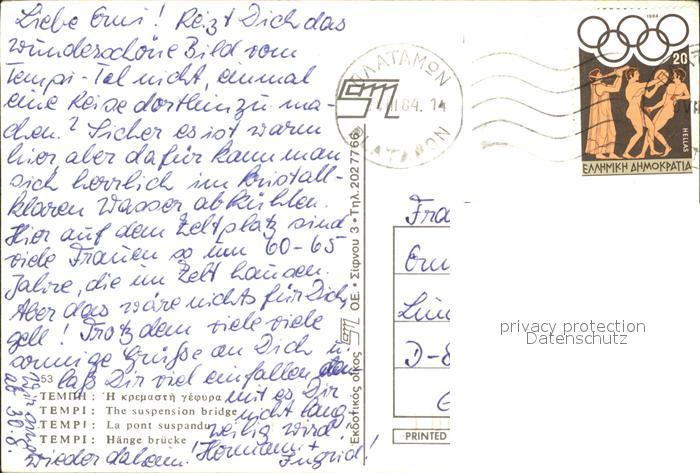 Liebe Erni! Reizt Dich das
wunderschöne Bild vom
Tempi-Tal nicht, einmal
eine Reise dorthin zu ma-
chen? Sicher es ist warm
hier aber dafür kann man
sich herrlich im kristall-
klaren Wasser abkühlen.
Hier auf dem Zeltplatz sind
viele Frauen so um 60-65
Jahre, die im Zelt hausen.
Aber das wäre nichts für Dich,
gell! Trotzdem viele viele
sonnige Grüße an Dich u.
laß Dir viel einfallen
mit es Dir
nicht lang-
weilig wird!
Hermann +
Ingrid!
ab 30.8.
wieder daheim!
53
ΤΕΜΠΗ: Ἡ κρεμαστὴ γέφυρα
TEMPI: The suspension bridge
TEMPI: La pont suspandu
TEMPI: Hänge brücke
Ἐκδοτικὸς οἶκος
Ο.Ε. • Σίφνου 3 • Τηλ. 2027766
ΠΛΑΤΑΜΩΝ
84. 14
PLATAMON
1984
20
HELLAS
ΕΛΛΗΝΙΚΗ ΔΗΜΟΚΡΑΤΙΑ
Fra
Erni
D-8
PRINTED
privacy protection
Datenschutz